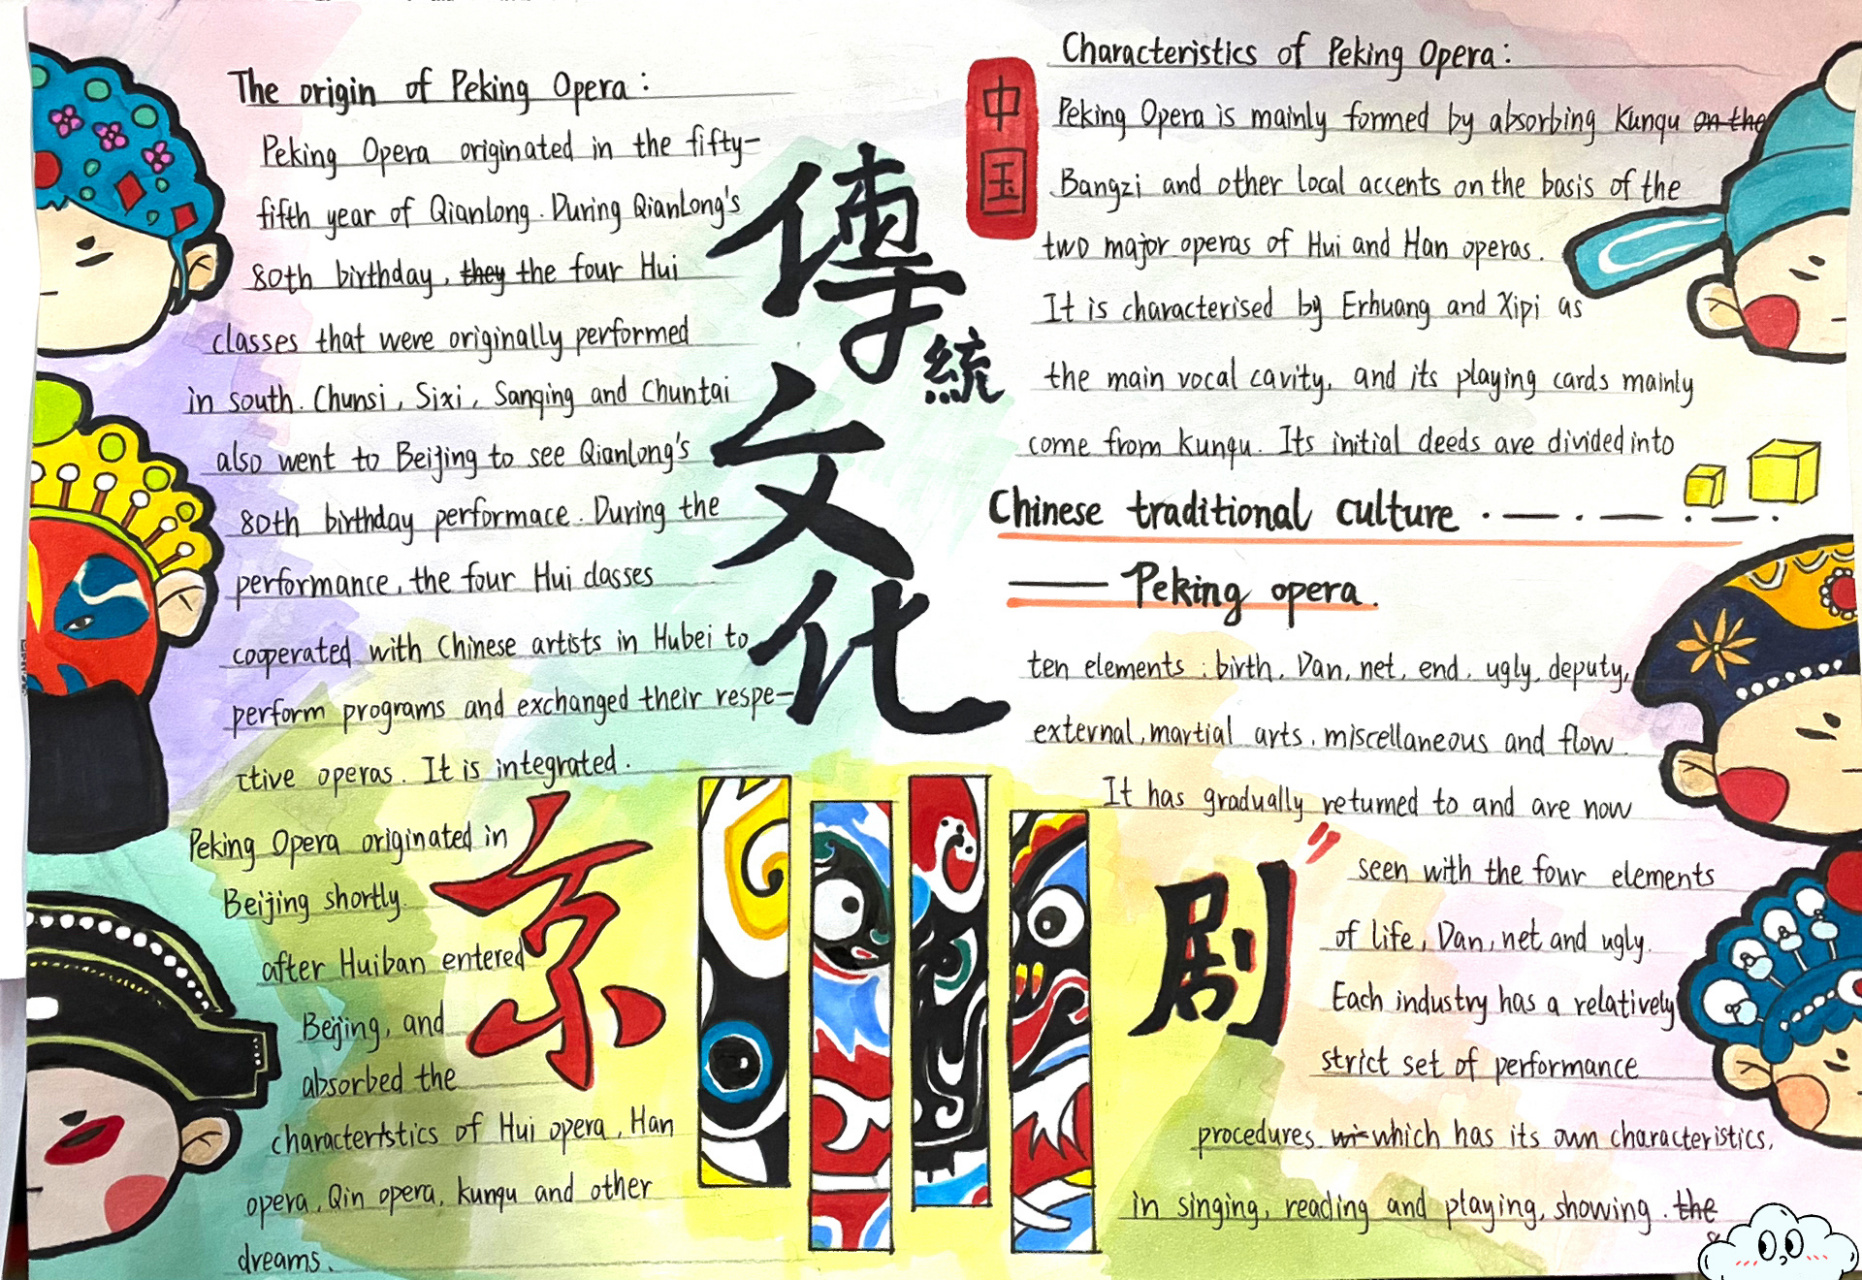 The origin of Peking Opera:
Peking Opera originated in the fifty-
fifth year of Qianlong. During QianLong's
80th birthday, they the four Hui
classes that were originally performed
in south. Chunsi, Sixi, Sanqing and Chuntai
also went to Beijing to see Qianlong's
80th birthday performace. During the
performance, the four Hui classes
cooperated with Chinese artists in Hubei to
perform programs and exchanged their respe-
ctive operas. It is integrated.
Peking Opera originated in
Beijing shortly
after Huiban entered
Beijing, and
absorbed the
charactertstics of Hui opera, Han
opera, Qin opera, kunqu and other
dreams.
傳統
文化
京
剧
中国
Characteristics of Peking Opera:
Peking Opera is mainly formed by absorbing Kunqu on the
Bangzi and other local accents on the basis of the
two major operas of Hui and Han operas.
It is characterised by Erhuang and Xipi as
the main vocal cavity, and its playing cards mainly
come from kunqu. Its initial deeds are divided into
Chinese traditional culture
—— Peking opera.
ten elements: birth, Dan, net, end, ugly, deputy,
external, martial arts, miscellaneous and flow
It has gradually returned to and are now
seen with the four elements
of life, Dan, net and ugly.
Each industry has a relatively
strict set of performance
procedures wi- which has its own characteristics,
in singing, reading and playing, showing. the